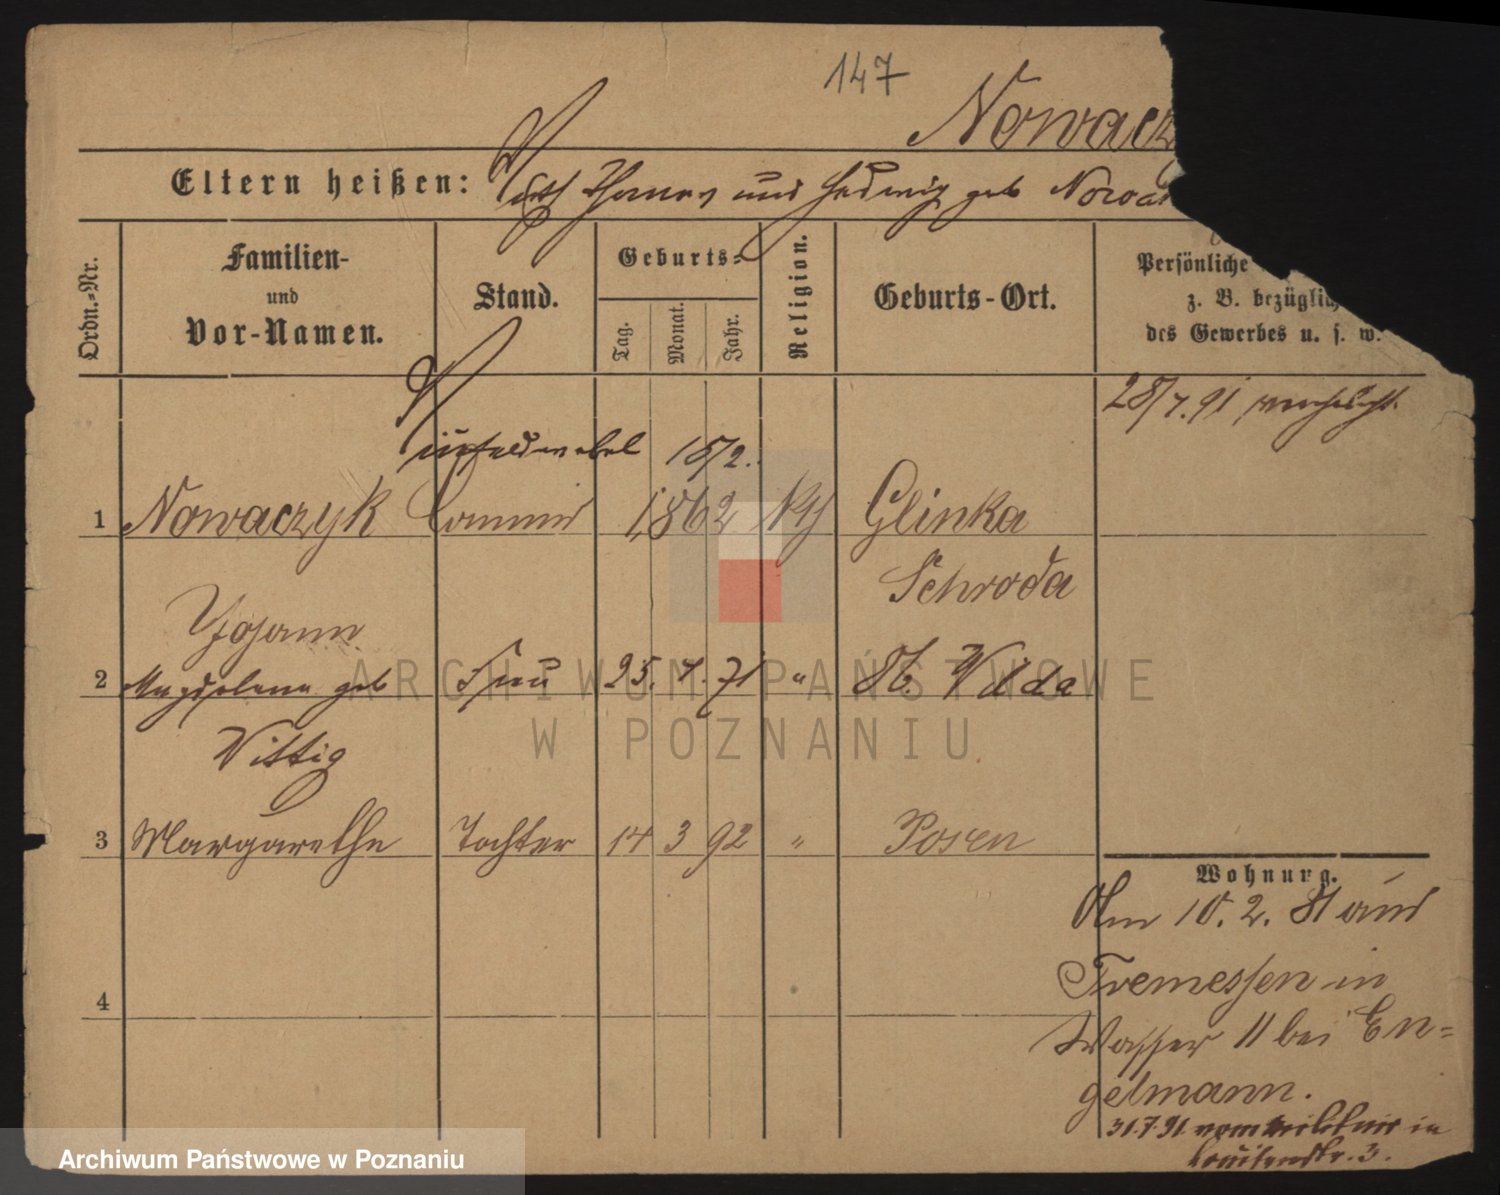 147
Nowacz
Eltern heißen: Thomas und Hedwig geb Nowa
Ordn.=Nr.
Familien-
und
Vor-Namen.
Stand.
Geburts=
Tag.
Monat.
Jahr.
Religion.
Geburts-Ort.
Persönliche
z. B. bezüglich
des Gewerbes u. s. w.
28/7.91
15/2.
1 Nowaczyk 1862 Kth Glinka
Schroda
Johann
2 Magdalena geb Frau 25. 7. 71 " St. Wilda
Wittig
3 Margarethe Tochter 14 3 92 " Posen
4
Wohnung.
Am 10. 2. 81 aus
Tremessen in
Wasser 11 bei En=
gelmann.
31.7.91 vom Militair in
Louisenstr. 3.
ARCHIWUM PAŃSTWOWE
W POZNANIU
Archiwum Państwowe w Poznaniu